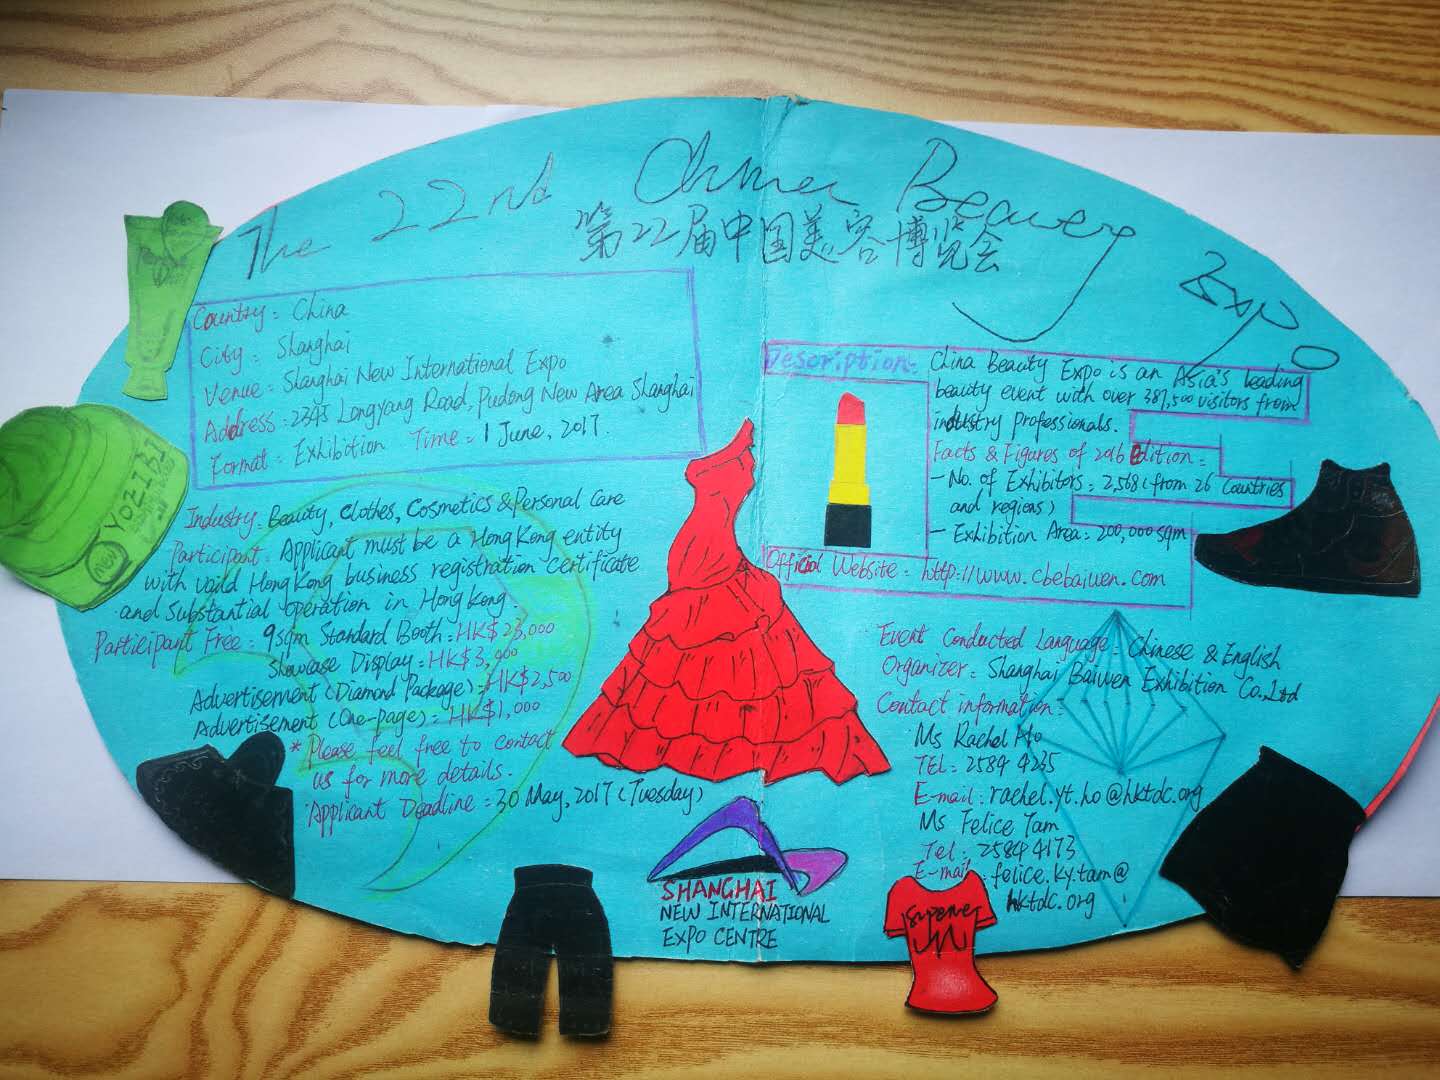 The 22nd China Beauty Expo
第22届中国美容博览会
Country: China
City: Shanghai
Venue: Shanghai New International Expo
Address: 2345 Longyang Road, Pudong New Area Shanghai
Format: Exhibition Time: 1 June, 2017.
Industry: Beauty, Clothes, Cosmetics & Personal Care
Participant: Applicant must be a Hong Kong entity
with vaild Hong Kong business registration certificate
and substantial operation in Hong Kong.
Participant Free: 9sqm Standard Booth: HK$23,000
Showcase Display: HK$3,000
Advertisement (Diamond Package): HK$2,500
Advertisement (One-page): HK$1,000
* Please feel free to contact
us for more details.
Applicant Deadline: 30 May, 2017 (Tuesday)
Description: China Beauty Expo is an Asia's leading
beauty event with over 387,500 visitors from
industry professionals.
Facts & Figures of 2016 Edition:
- No. of Exhibitors: 2,568 (from 26 countries
and regions)
- Exhibition Area: 200,000 sqm
Official Website: http://www.cbebaiwen.com
Event Conducted Language: Chinese & English
Organizer: Shanghai Baiwen Exhibition Co., Ltd
Contact information:
Ms Rachel Ho
TEL: 2584 4235
E-mail: rachel.yt.ho@hktdc.org
Ms Felice Tam
Tel: 2584 4173
E-mail: felice.ky.tam@
hktdc.org
SHANGHAI
NEW INTERNATIONAL
EXPO CENTRE
NEW